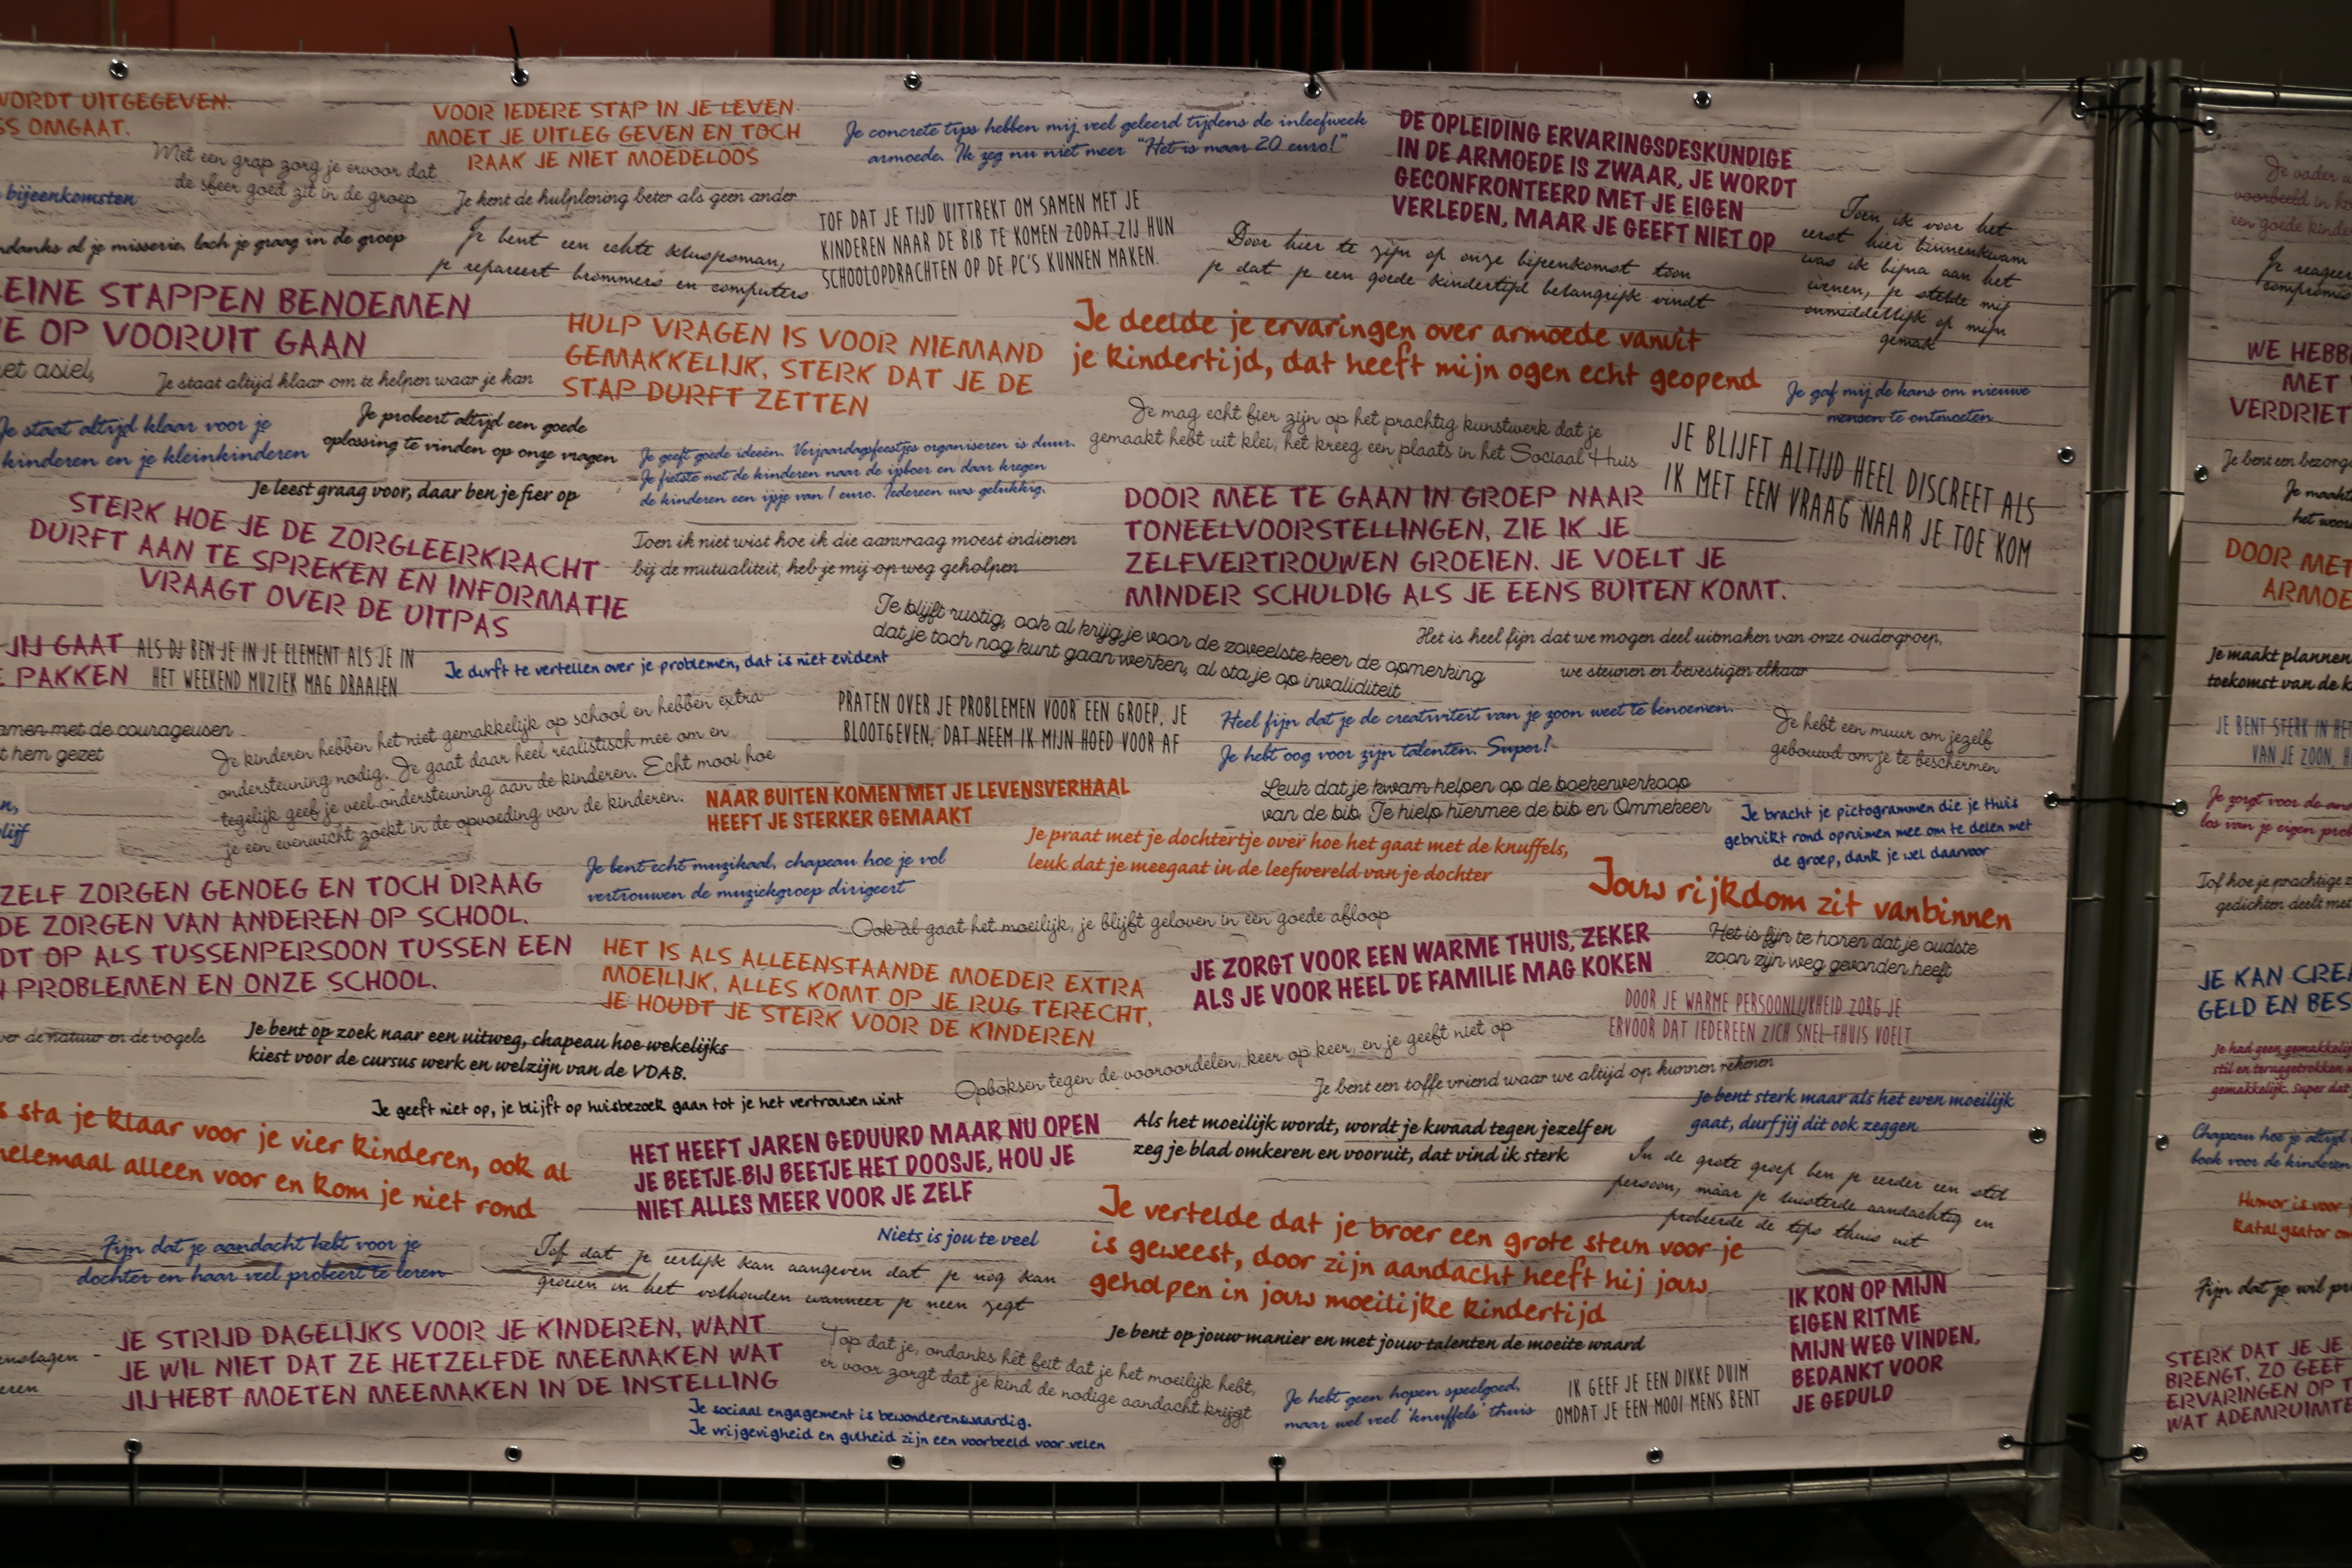 WORDT UITGEGEVEN.
OMGAAT.
Met een grap zorg je ervoor dat
de sfeer goed zit in de groep
bijeenkomsten
al je misserie, lach je graag in de groep
STAPPEN BENOEMEN
OP VOORUIT GAAN
asiel,
Je staat altijd klaar om te helpen waar je kan
VOOR IEDERE STAP IN JE LEVEN
MOET JE UITLEG GEVEN EN TOCH
RAAK JE NIET MOEDELOOS
Je kent de hulplening beter als geen ander
Je bent een echte klusjesman,
je repareert brommers en computers
Je concrete tips hebben mij veel geleerd tijdens de inleefweek
armoede. Ik zeg nu niet meer "Het is maar 20 euro!"
TOF DAT JE TIJD UITTREKT OM SAMEN MET JE
KINDEREN NAAR DE BIB TE KOMEN ZODAT ZIJ HUN
SCHOOLOPDRACHTEN OP DE PC'S KUNNEN MAKEN.
DE OPLEIDING ERVARINGSDESKUNDIGE
IN DE ARMOEDE IS ZWAAR, JE WORDT
GECONFRONTEERD MET JE EIGEN
VERLEDEN, MAAR JE GEEFT NIET OP
Door hier te zijn op onze bijeenkomst toon
je dat je een goede kindertijd belangrijk vindt
Toen ik voor het
eerst hier binnenkwam
was ik bijna aan het
wenen, je stelde mij
onmiddellijk op mijn
gemak
HULP VRAGEN IS VOOR NIEMAND
GEMAKKELIJK, STERK DAT JE DE
STAP DURFT ZETTEN
Je deelde je ervaringen over armoede vanuit
je kindertijd, dat heeft mijn ogen echt geopend
Je gaf mij de kans om nieuwe
mensen te ontmoeten
Je staat altijd klaar voor je
kinderen en je kleinkinderen
Je probeert altijd een goede
oplossing te vinden op onze vragen
Je leest graag voor, daar ben je fier op
Je geeft goede ideeën. Verjaardagsfeestjes organiseren is duur.
Je fietste met de kinderen naar de ijsboer en daar kregen
de kinderen een ijsje van 1 euro. Iedereen was gelukkig.
Je mag echt fier zijn op het prachtig kunstwerk dat je
gemaakt hebt uit klei, het kreeg een plaats in het Sociaal Huis
JE BLIJFT ALTIJD HEEL DISCREET ALS
IK MET EEN VRAAG NAAR JE TOE KOM
STERK HOE JE DE ZORGLEERKRACHT
DURFT AAN TE SPREKEN EN INFORMATIE
VRAAGT OVER DE UITPAS
Toen ik niet wist hoe ik die aanvraag moest indienen
bij de mutualiteit, heb je mij op weg geholpen
DOOR MEE TE GAAN IN GROEP NAAR
TONEELVOORSTELLINGEN, ZIE IK JE
ZELFVERTROUWEN GROEIEN. JE VOELT JE
MINDER SCHULDIG ALS JE EENS BUITEN KOMT.
JIJ GAAT
PAKKEN
ALS DJ BEN JE IN JE ELEMENT ALS JE IN
HET WEEKEND MUZIEK MAG DRAAIEN
Je durft te vertellen over je problemen, dat is niet evident
Je blijft rustig, ook al krijg je voor de zoveelste keer de opmerking
dat je toch nog kunt gaan werken, al sta je op invaliditeit
Het is heel fijn dat we mogen deel uitmaken van onze oudergroep,
we steunen en bevestigen elkaar
met de courageusen
hem gezet
Je kinderen hebben het niet gemakkelijk op school en hebben extra
ondersteuning nodig. Je gaat daar heel realistisch mee om en
tegelijk geef je veel ondersteuning aan de kinderen. Echt mooi hoe
je een evenwicht zoekt in de opvoeding van de kinderen.
PRATEN OVER JE PROBLEMEN VOOR EEN GROEP, JE
BLOOTGEVEN, DAT NEEM IK MIJN HOED VOOR AF
Heel fijn dat je de creativiteit van je zoon weet te benoemen.
Je hebt oog voor zijn talenten. Super!
Je hebt een muur om jezelf
gebouwd om je te beschermen
NAAR BUITEN KOMEN MET JE LEVENSVERHAAL
HEEFT JE STERKER GEMAAKT
Leuk dat je kwam helpen op de boekenverkoop
van de bib. Je hielp hiermee de bib en Ommekeer
Je bracht je pictogrammen die je thuis
gebruikt rond opruimen mee om te delen met
de groep, dank je wel daarvoor
Je praat met je dochtertje over hoe het gaat met de knuffels,
leuk dat je meegaat in de leefwereld van je dochter
Je bent echt muzikaal, chapeau hoe je vol
vertrouwen de muziekgroep dirigeert
Jouw rijkdom zit vanbinnen
ZELF ZORGEN GENOEG EN TOCH DRAAG
DE ZORGEN VAN ANDEREN OP SCHOOL.
OP ALS TUSSENPERSOON TUSSEN EEN
PROBLEMEN EN ONZE SCHOOL.
Ook al gaat het moeilijk, je blijft geloven in een goede afloop
HET IS ALS ALLEENSTAANDE MOEDER EXTRA
MOEILIJK, ALLES KOMT OP JE RUG TERECHT,
JE HOUDT JE STERK VOOR DE KINDEREN
JE ZORGT VOOR EEN WARME THUIS, ZEKER
ALS JE VOOR HEEL DE FAMILIE MAG KOKEN
Het is fijn te horen dat je oudste
zoon zijn weg gevonden heeft
DOOR JE WARME PERSOONLIJKHEID ZORG JE
ERVOOR DAT IEDEREEN ZICH SNEL THUIS VOELT
de natuur en de vogels
Je bent op zoek naar een uitweg, chapeau hoe wekelijks
kiest voor de cursus werk en welzijn van de VDAB.
Opboksen tegen de vooroordelen, keer op keer, en je geeft niet op
Je bent een toffe vriend waar we altijd op kunnen rekenen
Je geeft niet op, je blijft op huisbezoek gaan tot je het vertrouwen wint
Je bent sterk maar als het even moeilijk
gaat, durf jij dit ook zeggen
sta je klaar voor je vier kinderen, ook al
helemaal alleen voor en kom je niet rond
HET HEEFT JAREN GEDUURD MAAR NU OPEN
JE BEETJE BIJ BEETJE HET DOOSJE, HOU JE
NIET ALLES MEER VOOR JE ZELF
Als het moeilijk wordt, wordt je kwaad tegen jezelf en
zeg je blad omkeren en vooruit, dat vind ik sterk
In de grote groep ben je eerder een stil
persoon, maar je luisterde aandachtig en
probeerde de tips thuis uit
Fijn dat je aandacht hebt voor je
dochter en haar veel probeert te leren
Niets is jou te veel
Tof dat je eerlijk kan aangeven dat je nog kan
groeien in het volhouden wanneer je neen zegt
Je vertelde dat je broer een grote steun voor je
is geweest, door zijn aandacht heeft hij jouw
geholpen in jouw moeilijke kindertijd
Je bent op jouw manier en met jouw talenten de moeite waard
IK KON OP MIJN
EIGEN RITME
MIJN WEG VINDEN,
BEDANKT VOOR
JE GEDULD
JE STRIJD DAGELIJKS VOOR JE KINDEREN, WANT
JE WIL NIET DAT ZE HETZELFDE MEEMAKEN WAT
JIJ HEBT MOETEN MEEMAKEN IN DE INSTELLING
Top dat je, ondanks het feit dat je het moeilijk hebt,
er voor zorgt dat je kind de nodige aandacht krijgt
Je hebt geen hopen speelgoed,
maar wel veel 'knuffels' thuis
IK GEEF JE EEN DIKKE DUIM
OMDAT JE EEN MOOI MENS BENT
Je sociaal engagement is bewonderenswaardig.
Je vrijgevigheid en gulheid zijn een voorbeeld voor velen
Je vader
voorbeeld in
een goede
Je
WE
MET
VERDRIET
Je bent een
Je
het
DOOR MET
Je maakt plannen
toekomst van de
JE BENT STERK IN HET
VAN JE ZOON,
Je zorgt voor de
los van je eigen
Tof hoe je prachtige
gedichten deelt met
JE KAN
GELD EN
Je had geen
stil en teruggetrokken
gemakkelijk. Super dat
Chapeau hoe je altijd
boek voor de kinderen
Humor is voor
Katalysator
Fijn dat je wil
STERK DAT JE JE
BRENGT, ZO GEEF
ERVARINGEN OP
WAT